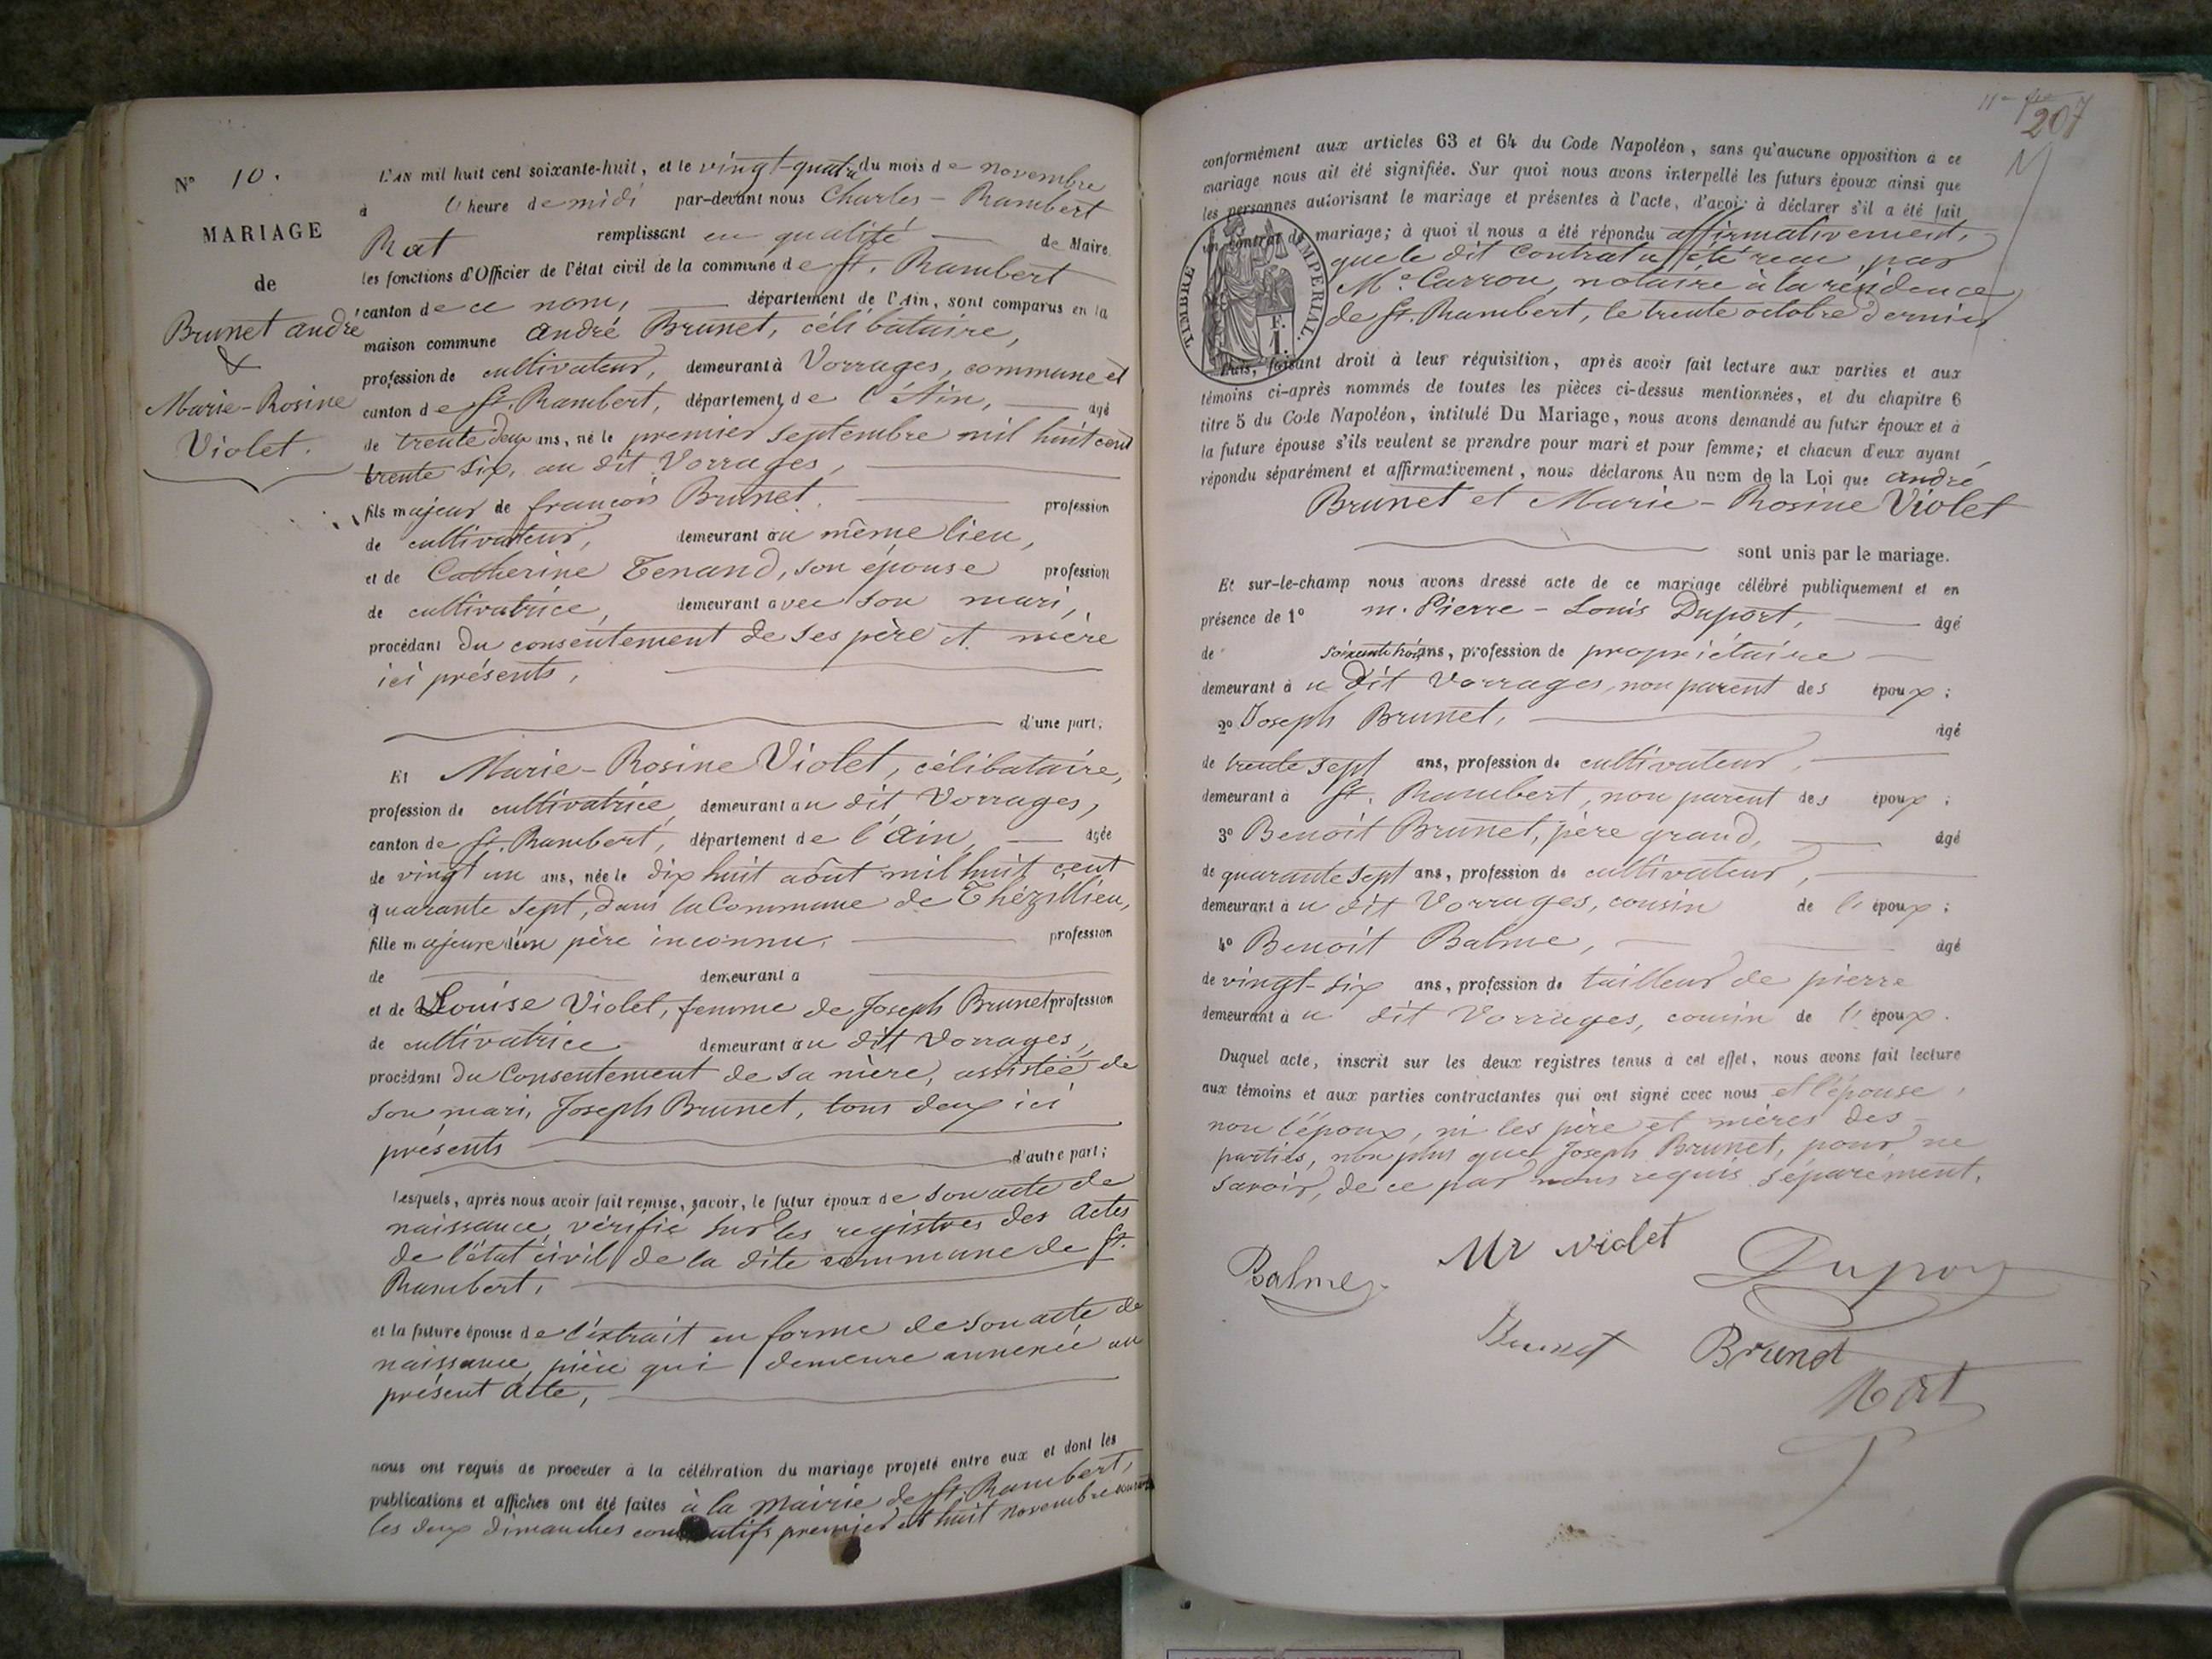 N° 10.
MARIAGE
de
Brunet andré
&
Marie-Rosine
Violet.
L'AN mil huit cent soixante-huit, et le vingt-quatre du mois de novembre
à l'heure de midi par-devant nous Charles-Rambert
Rat remplissant en qualité de Maire
les fonctions d'Officier de l'état civil de la commune de St. Rambert
canton de ce nom, département de l'Ain, sont comparus en la
maison commune andré Brunet, célibataire,
profession de cultivateur, demeurant à Vorrages, commune et
canton de St. Rambert, département de l'Ain, âgé
de trente deux ans, né le premier septembre mil huit cent
trente six, au dit Vorrages,
fils majeur de françois Brunet profession
de cultivateur, demeurant au même lieu,
et de Catherine Tenand, son épouse profession
de cultivatrice, demeurant avec son mari,
procédant du consentement de ses père et mère
ici présents,
d'une part.
Et Marie-Rosine Violet, célibataire,
profession de cultivatrice demeurant au dit Vorrages,
canton de St. Rambert, département de l'Ain, âgée
de vingt un ans, née le dix huit août mil huit cent
quarante sept, dans la Commune de Thézillieu,
fille majeure d'un père inconnu, profession
de demeurant à
et de Louise Violet, femme de Joseph Brunet profession
de cultivatrice demeurant au dit Vorrages,
procédant du Consentement de sa mère, assistée de
son mari, Joseph Brunet, tous deux ici
présents d'autre part;
Lesquels, après nous avoir fait remise, savoir, le futur époux de son acte de
naissance, vérifié sur les registres des Actes
de l'état civil de la dite commune de St.
Rambert,
et la future épouse de l'extrait en forme de son acte de
naissance, pièce qui demeure annexée au
présent acte,
nous ont requis de procéder à la célébration du mariage projeté entre eux et dont les
publications et affiches ont été faites à la mairie de St. Rambert,
les deux dimanches consécutifs premier et huit novembre courant
207
conformément aux articles 63 et 64 du Code Napoléon, sans qu'aucune opposition à ce
mariage nous ait été signifiée. Sur quoi nous avons interpellé les futurs époux ainsi que
les personnes autorisant le mariage et présentes à l'acte, d'avoir à déclarer s'il a été fait
un contrat de mariage; à quoi il nous a été répondu affirmativement,
que le dit contrat a été recu par
Me. Carron, notaire à la résidence
de St. Rambert, le trente octobre dernier
TIMBRE IMPERIAL.
1 F.
Puis, faisant droit à leur réquisition, après avoir fait lecture aux parties et aux
témoins ci-après nommés de toutes les pièces ci-dessus mentionnées, et du chapitre 6
titre 5 du Code Napoléon, intitulé Du Mariage, nous avons demandé au futur époux et à
la future épouse s'ils veulent se prendre pour mari et pour femme; et chacun d'eux ayant
répondu séparément et affirmativement, nous déclarons Au nom de la Loi que andré
Brunet et Marie-Rosine Violet
sont unis par le mariage.
Et sur-le-champ nous avons dressé acte de ce mariage célébré publiquement et en
présence de 1° m. Pierre-Louis Duport, âgé
de soixante trois ans, profession de propriétaire
demeurant à u dit Vorrages, non parent des époux;
2° Joseph Brunet, âgé
de trente sept ans, profession de cultivateur,
demeurant à St. Rambert, non parent des époux;
3° Benoit Brunet, père grand, âgé
de quarante sept ans, profession de cultivateur,
demeurant à u dit Vorrages, cousin de l'époux;
4° Benoit Balme, âgé
de vingt-six ans, profession de tailleur de pierre
demeurant à u dit Vorrages, cousin de l'époux.
Duquel acte, inscrit sur les deux registres tenus à cet effet, nous avons fait lecture
aux témoins et aux parties contractantes qui ont signé avec nous et l'épouse,
non l'époux, ni les père et mères des
parties, non plus que Joseph Brunet, pour ne
savoir, de ce par nous requis séparément.
Balme Mr violet Duport
Brunet Brunet
Rat